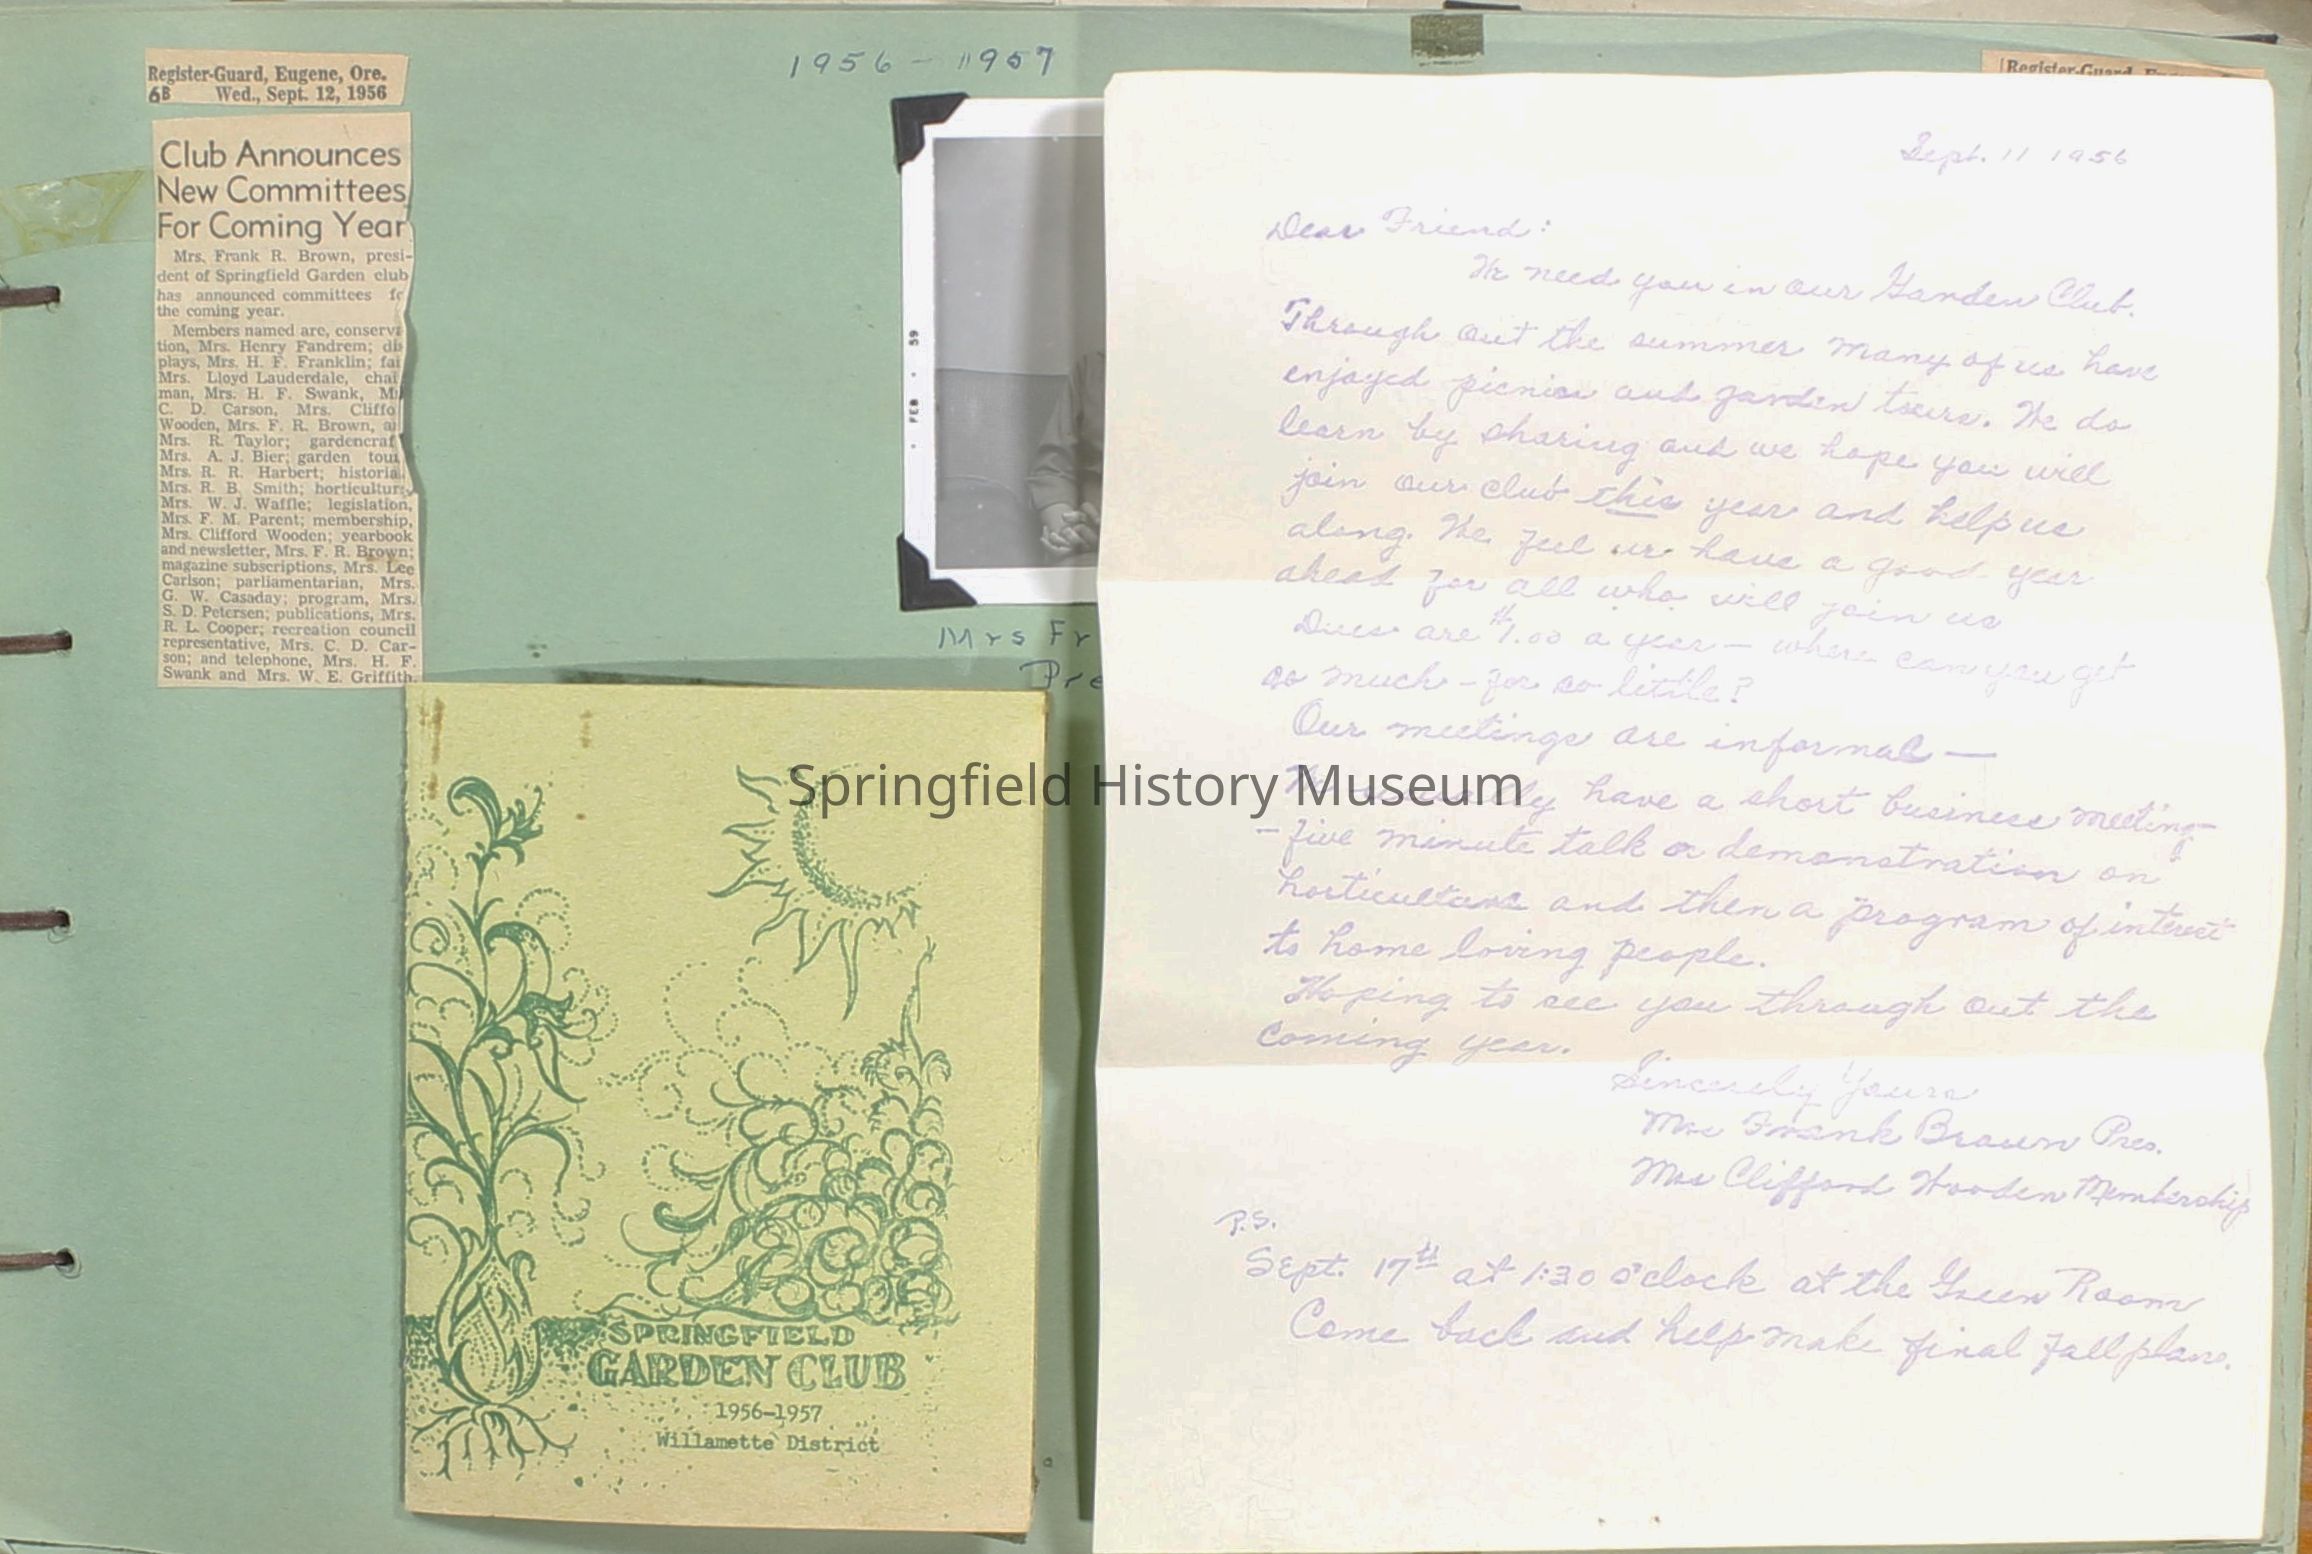 1956 - 1957
Register-Guard, Eugene, Ore.
6B Wed., Sept. 12, 1956
Club Announces
New Committees
For Coming Year
Mrs. Frank R. Brown, presi-
dent of Springfield Garden club
has announced committees fo
the coming year.
Members named are, conserva
tion, Mrs. Henry Fandrem; dis
plays, Mrs. H. F. Franklin; fai
Mrs. Lloyd Lauderdale, chai
man, Mrs. H. F. Swank, M
C. D. Carson, Mrs. Cliffo
Wooden, Mrs. F. R. Brown, a
Mrs. R. Taylor; gardencraf
Mrs. A. J. Bier; garden tour
Mrs. R. R. Harbert; historia
Mrs. R. B. Smith; horticultur
Mrs. W. J. Waffle; legislation,
Mrs. F. M. Parent; membership,
Mrs. Clifford Wooden; yearbook
and newsletter, Mrs. F. R. Brown;
magazine subscriptions, Mrs. Lee
Carlson; parliamentarian, Mrs.
G. W. Casaday; program, Mrs.
S. D. Petersen; publications, Mrs.
R. L. Cooper; recreation council
representative, Mrs. C. D. Car-
son; and telephone, Mrs. H. F.
Swank and Mrs. W. E. Griffith.
FEB 59
Mrs Fr
Pre
SPRINGFIELD
GARDEN CLUB
1956-1957
Willamette District
Springfield History Museum
Register-Guard,
Sept. 11 1956
Dear Friend:
We need you in our Garden Club.
Through out the summer many of us have
enjoyed picnics and garden tours. We do
learn by sharing and we hope you will
join our club this year and help us
along. We feel we have a good year
ahead for all who will join us
Dues are $1.00 a year - where can you get
so much - for so little?
Our meetings are informal -
We usually have a short business meeting -
- five minute talk or demonstration on
horticulture and then a program of interest
to home loving people.
Hoping to see you through out the
coming year.
Sincerely Yours
Mrs Frank Brown Pres.
Mrs Clifford Wooden Membership
P.S.
Sept. 17th at 1:30 o'clock at the Green Room
Come back and help make final fall plans.